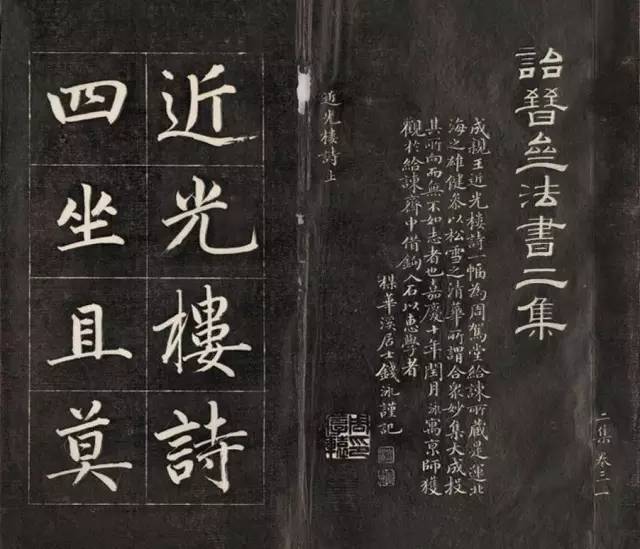 二集 卷三 一
詒晉亝法書二集
成親王近光樓詩一幅為周駕堂給諫所藏是運北
海之雄健叅以松雪之清華所謂合衆妙集大成投
其所向而無不如志者也嘉慶十年閏月泳寓京師獲
觀於給諫齋中借鉤入石以惠學者
楳華溪居士錢泳謹記
近光樓詩上
近光樓詩
四坐且莫